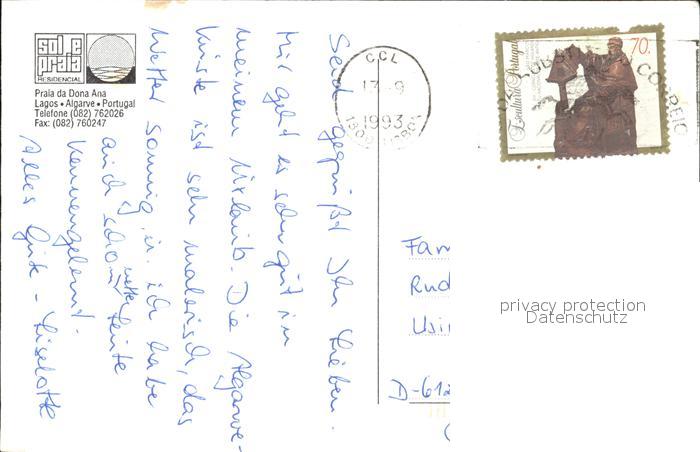 sol e
praia
RESIDENCIAL
Praia da Dona Ana
Lagos • Algarve • Portugal
Telefone (082) 762026
Fax: (082) 760247
Seid gegrüßt Ihr Lieben.
Mir geht es sehr gut in
meinem Urlaub. Die Algarve-
küste ist sehr malerisch, das
Wetter sonnig, u. ich habe
auch schon nette Leute
kennengelernt.
Alles Gute - Liselotte
CCL
17-9
1993
Escultura Portugal
70.
CORREIO
Fam
Rud
Usin
D-612
privacy protection
Datenschutz